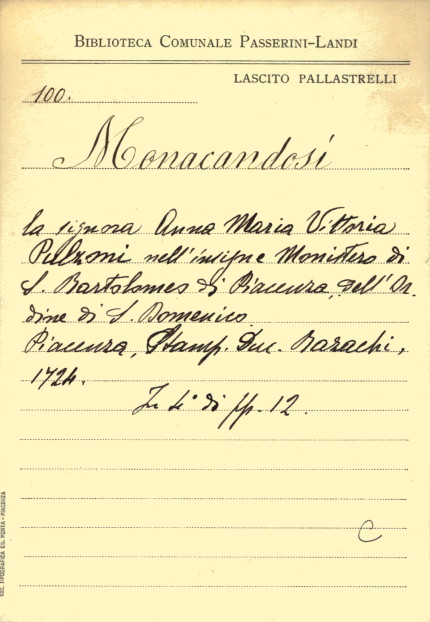 BIBLIOTECA COMUNALE PASSERINI-LANDI
LASCITO PALLASTRELLI
100.
Monacandosi
la signora Anna Maria Vittoria
Pulzoni nell'insigne Monistero di
S. Bartolomeo di Piacenza, dell'Or.
dine di S. Domenico.
Piacenza, Stamp. Duc. Bazachi,
1724.
In 4° di pp. 12.
C
SOC. TIPOGRAFICA ED. PORTA - PIACENZA